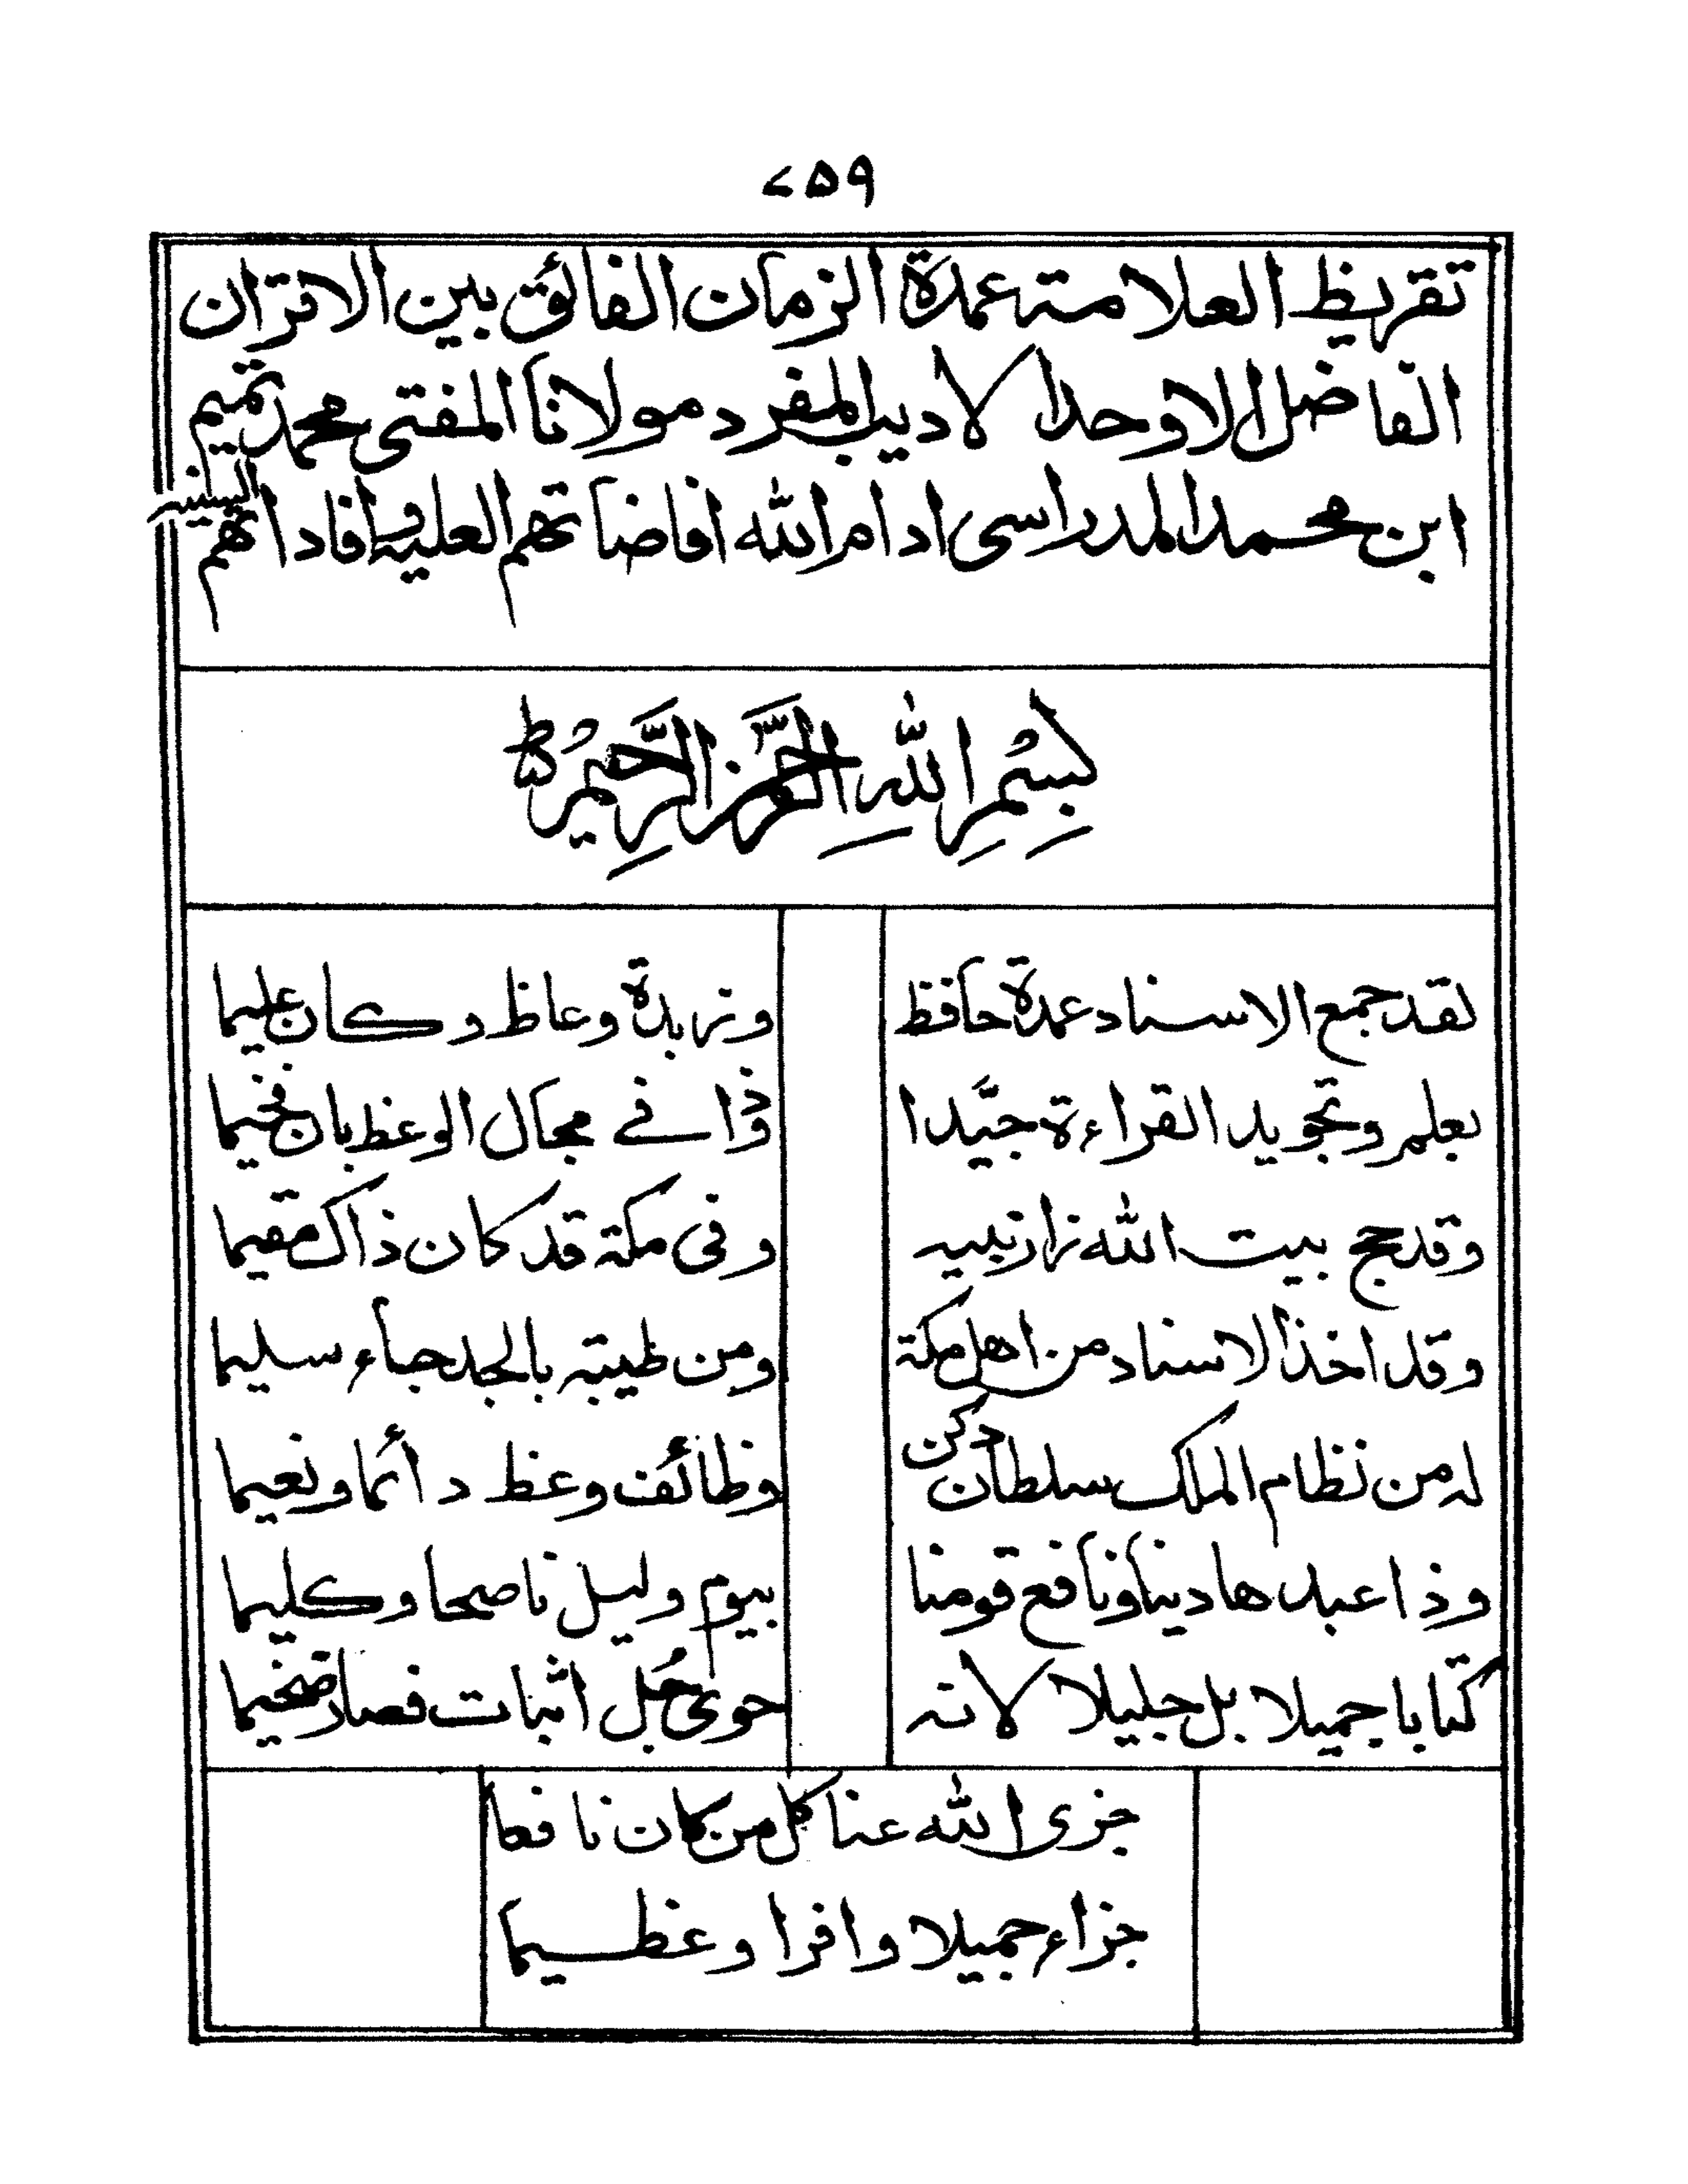 ۷۵۹
تقريظ العلامة عمدة الزمان الفائق بين الاقران
الفاضل الاوحد الاديب المفرد مولانا المفتى محمد تميم
ابن محمد المدراسى ادام الله افاضاتهم العلية و افاداتهم السنية
بِسْمِ اللهِ الرَّحْمٰنِ الرَّحِيْمِ ط
لقد جمع الاسناد عمدة حافظ وزبدة وعاظ وكان عليما
بعلم وتجويد القراءة جيَّدا وذا فے مجال الوعظ بان فخيما
وقد حج بيت الله زار نبيه وفى مكة قد كان ذاك مقيما
وقد اخذ الاسناد من اهل مكة ومن طيبة بالجد جاء سليما
له من نظام الملك سلطان دكن وظائف وعظ دائما ونعيما
وذا عبد هادينا ونافع قومنا بيوم وليل ناصحا وكليما
كتابا جميلا بل جليلا لانه حوى جُل اثبات فصار ضخيما
جزى الله عنا كل من كان نافعا
جزاء جميلا وافرا وعظيما